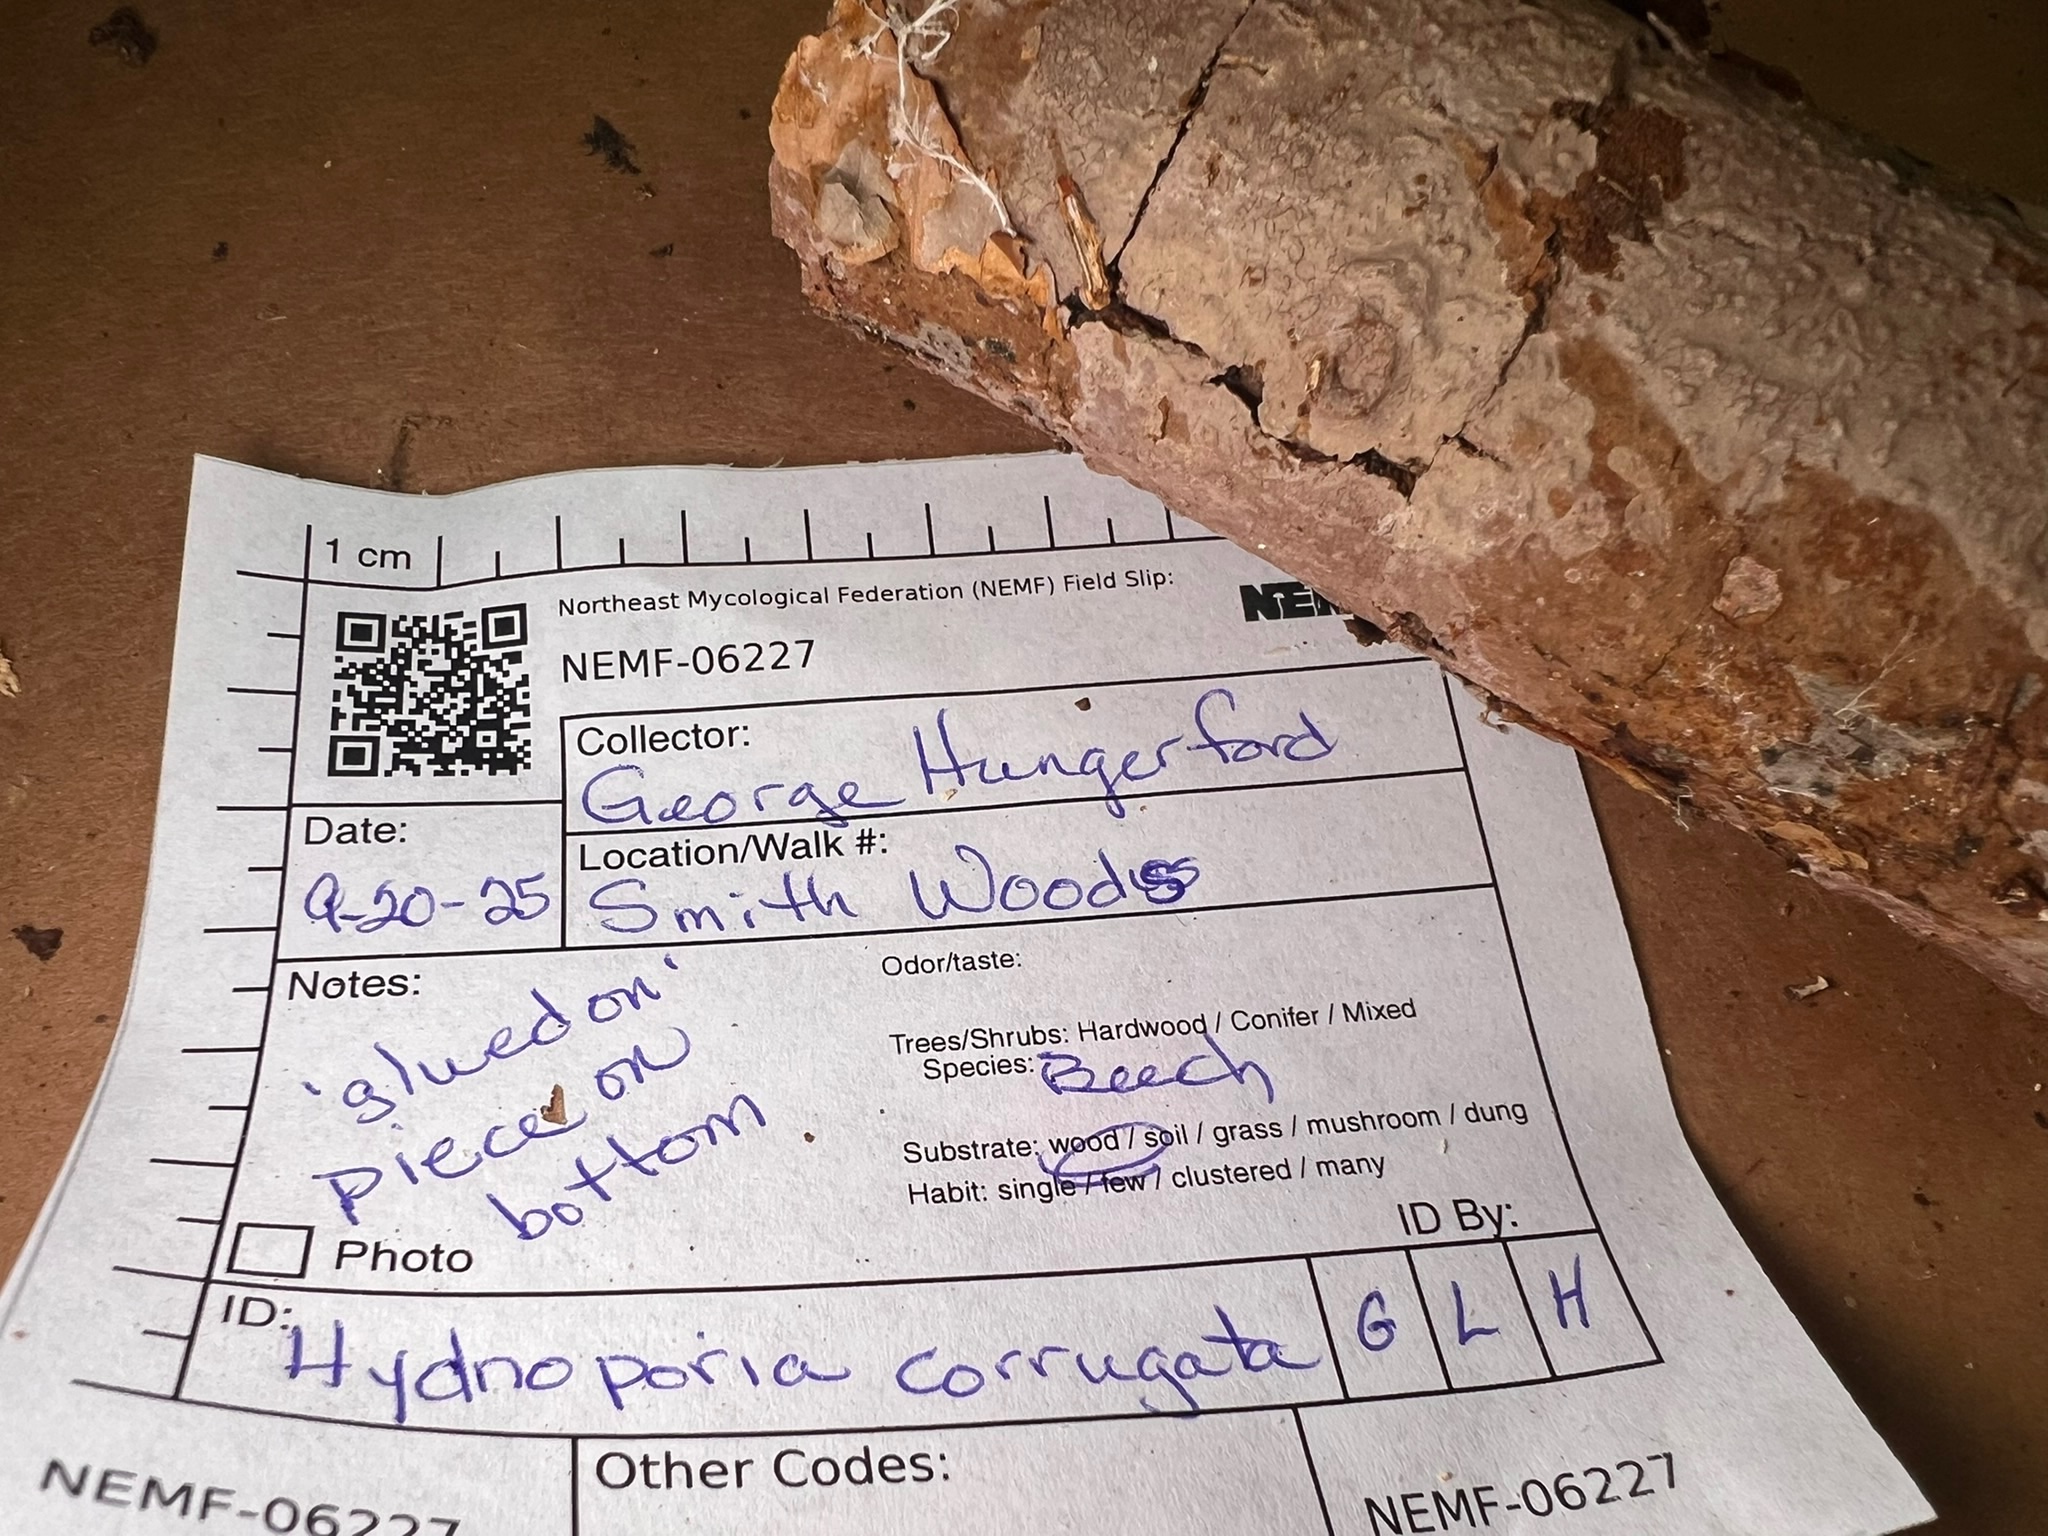 1 cm
Northeast Mycological Federation (NEMF) Field Slip:
NEMF-06227
Collector:
George Hungerford
Date:
9-20-25
Location/Walk #:
Smith Woods
Notes:
'glued on'
piece on
bottom
Odor/taste:
Trees/Shrubs: Hardwood / Conifer / Mixed
Species: Beech
Substrate: wood / soil / grass / mushroom / dung
Habit: single / few / clustered / many
Photo
ID By:
ID: Hydnoporia corrugata
G L H
NEMF-06227
Other Codes:
NEMF-06227